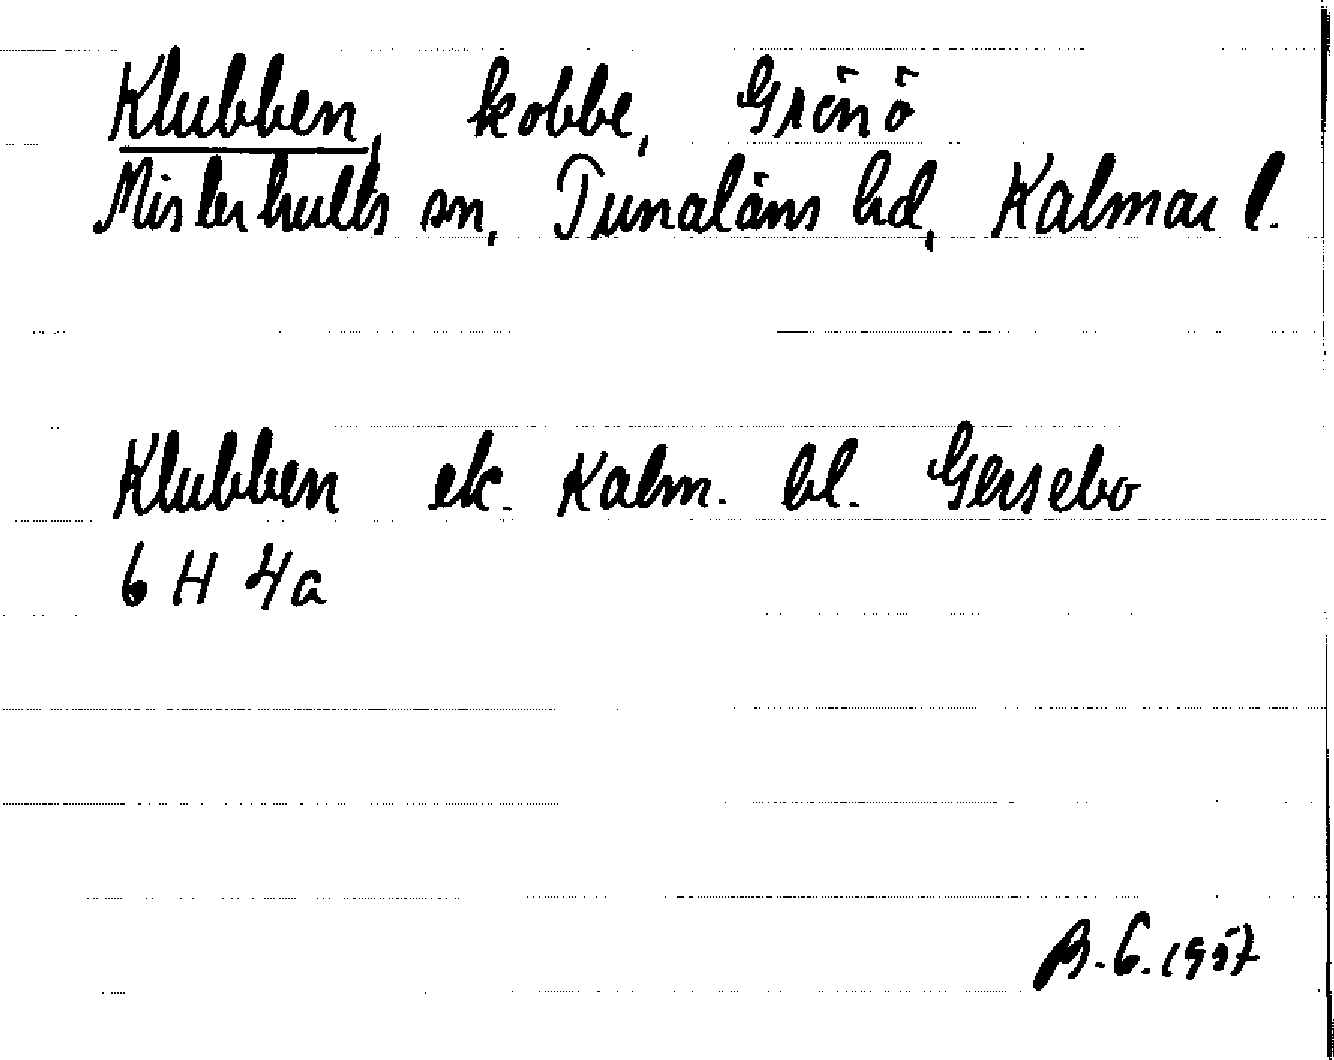 Klubben, kobbe, Grönö
Misterhults sn, Tunaläns hd, Kalmar l.
Klubben ek. Kalm. bl. Gersebo
6 H 4a
B.G. 1957